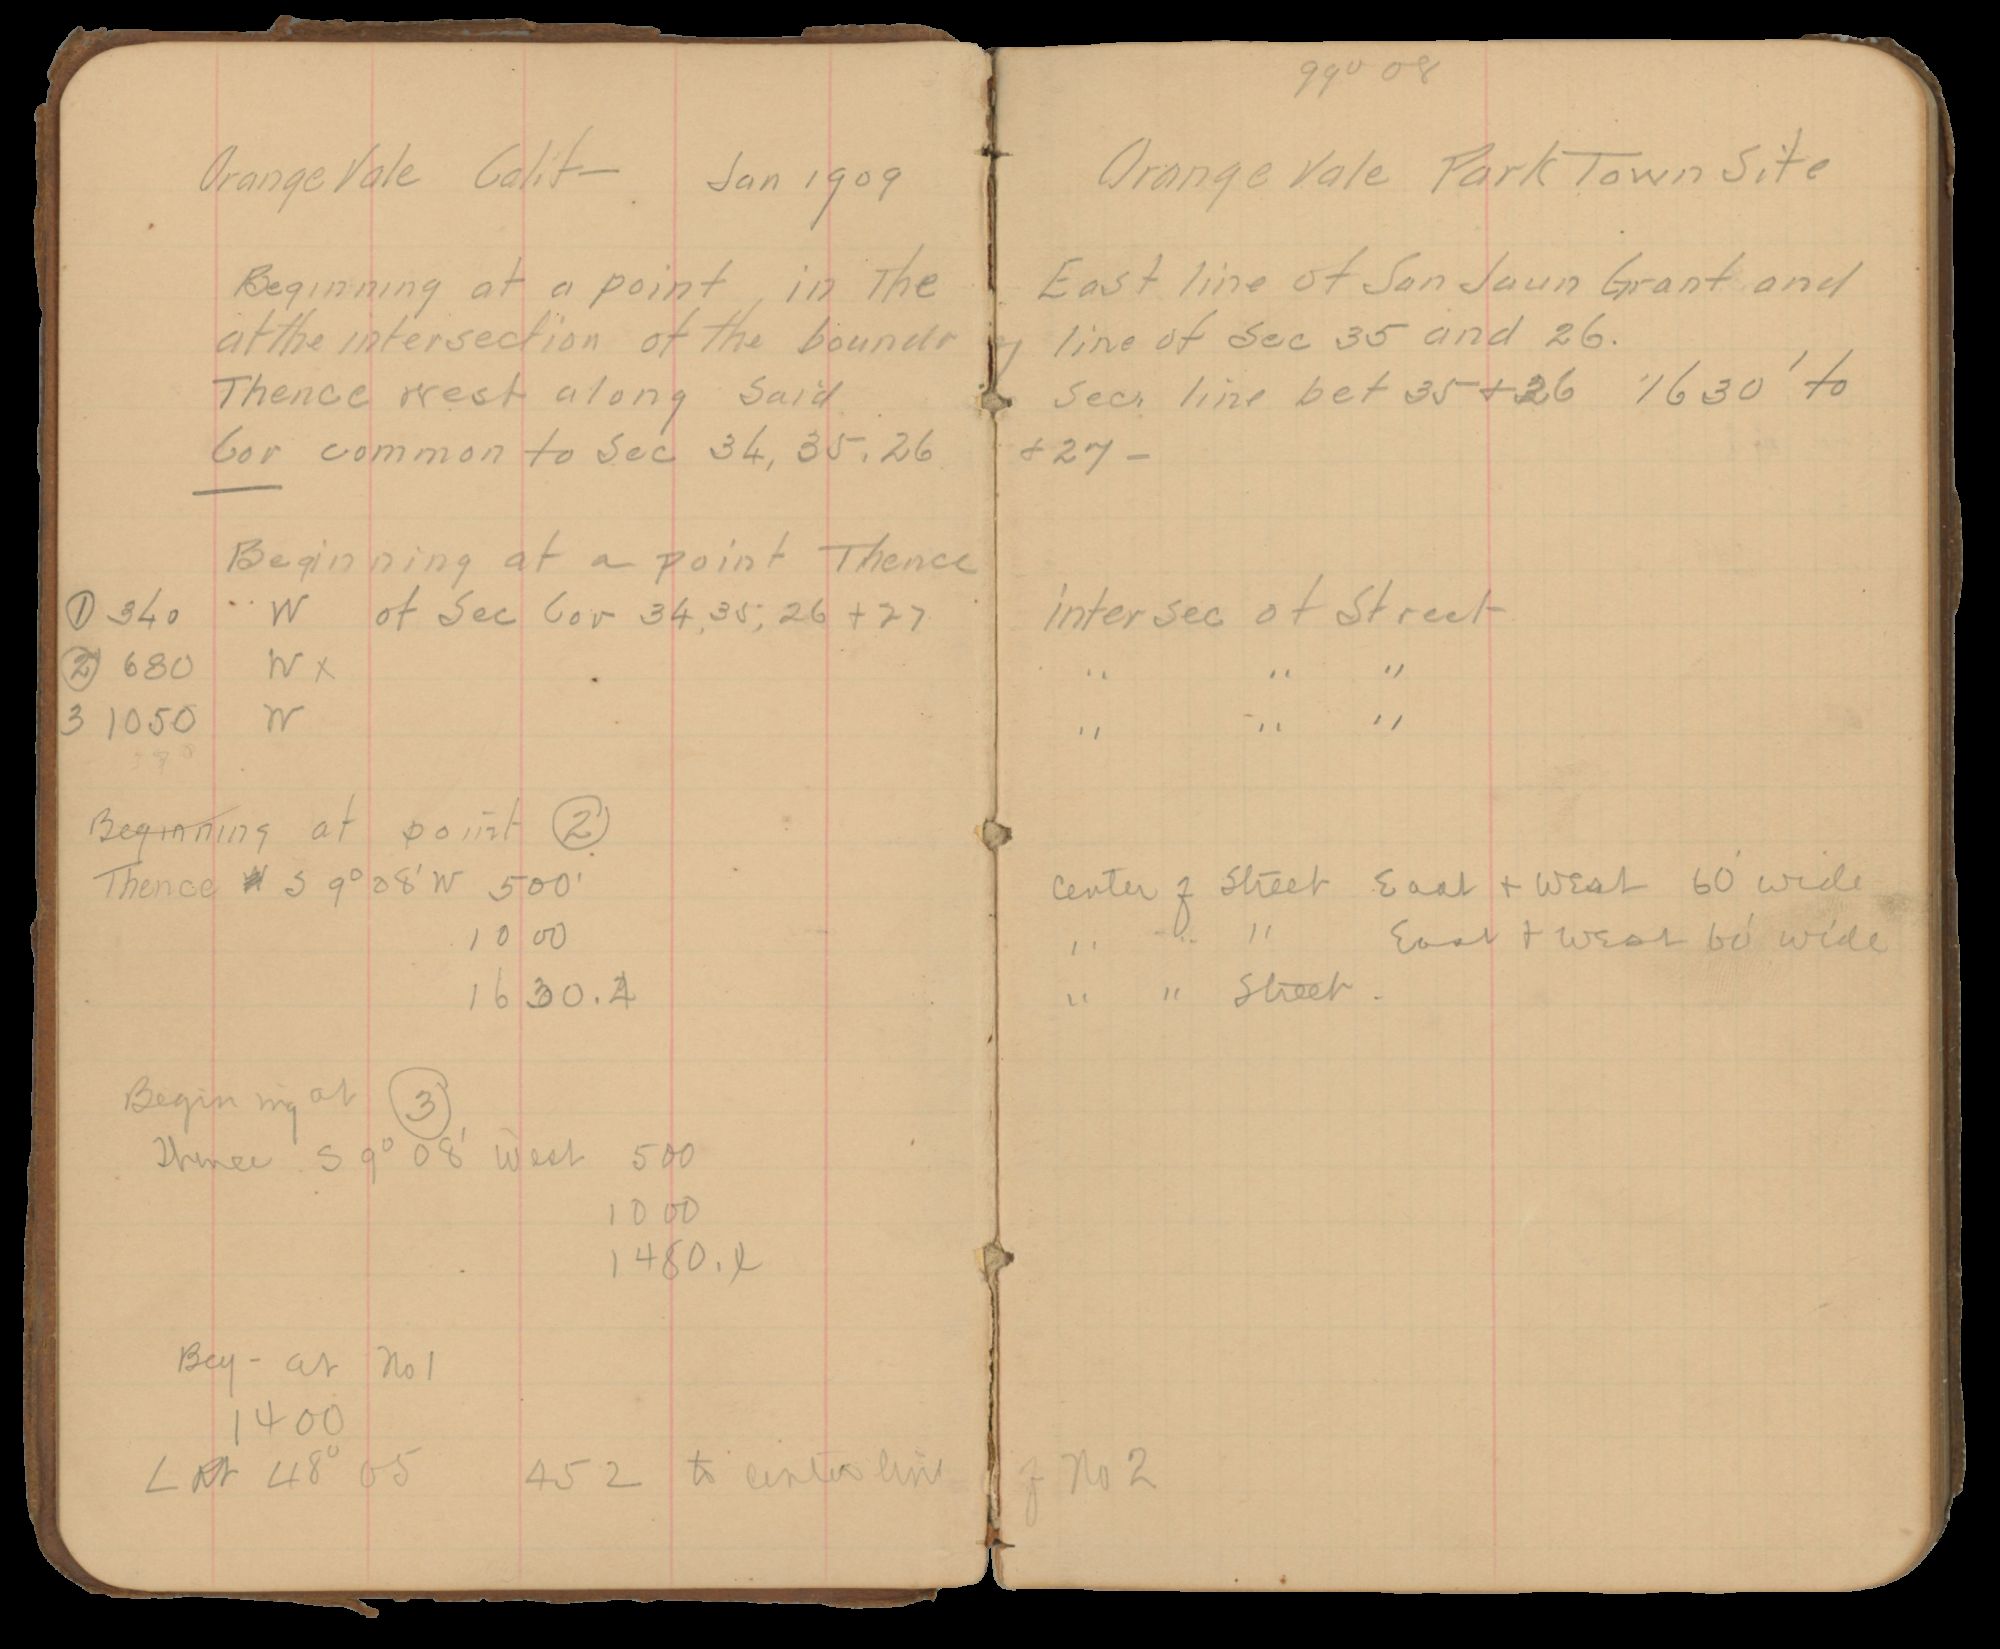 99° 08
Orange Vale Calif- Jan 1909 Orange Vale Park Town Site
Beginning at a point in The East line of San Jaun Grant and
at the intersection of the boundry line of Sec 35 and 26.
Thence west along Said Sec. line bet 35 + 26 1630' to
Cor common to Sec 34, 35, 26 + 27 -
Beginning at a point Thence
① 340 W of Sec Cor 34, 35, 26 + 27 intersec of Street
② 680 W x " " "
3 1050 W " " "
Beginning at point ②
Thence S 9° 08' W 500' center of Street East + West 60' wide
1000 " " " East + West 60' wide
1630.4 " " Street.
Beginning at ③
Thence S 9° 08' West 500
1000
1480.
Beg- at No 1
1400
L 48° 05 452 to center line of No 2